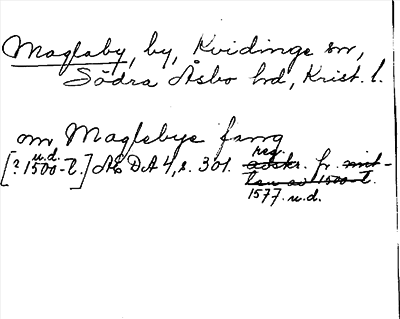 Maglaby, by, Kvidinge sn,
Södra Åsbo hd, Krist. l.
om Maglebye fang
[? u.d. 1500-t.] Æ DA 4, s. 301. reg. adskr. fr. mit-
ten av 1500-t.
1577. u.d.